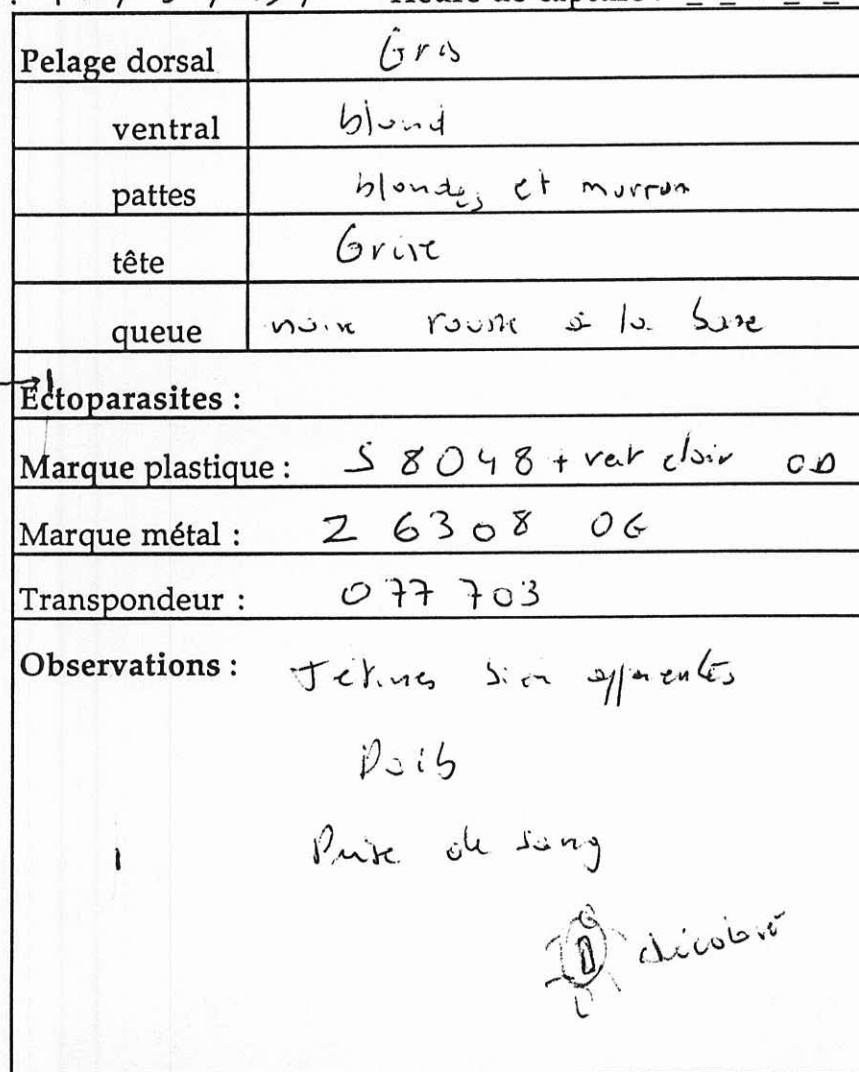 Heure de capture :
Pelage dorsal Gris
ventral blond
pattes blondes et marron
tête Grise
queue noire rousse à la base
Ectoparasites :
Marque plastique : S 8048 + vert clair OD
Marque métal : Z 6308 OG
Transpondeur : 077 703
Observations : Tétines bien apparentes
Poils
Prise de sang
décoloré